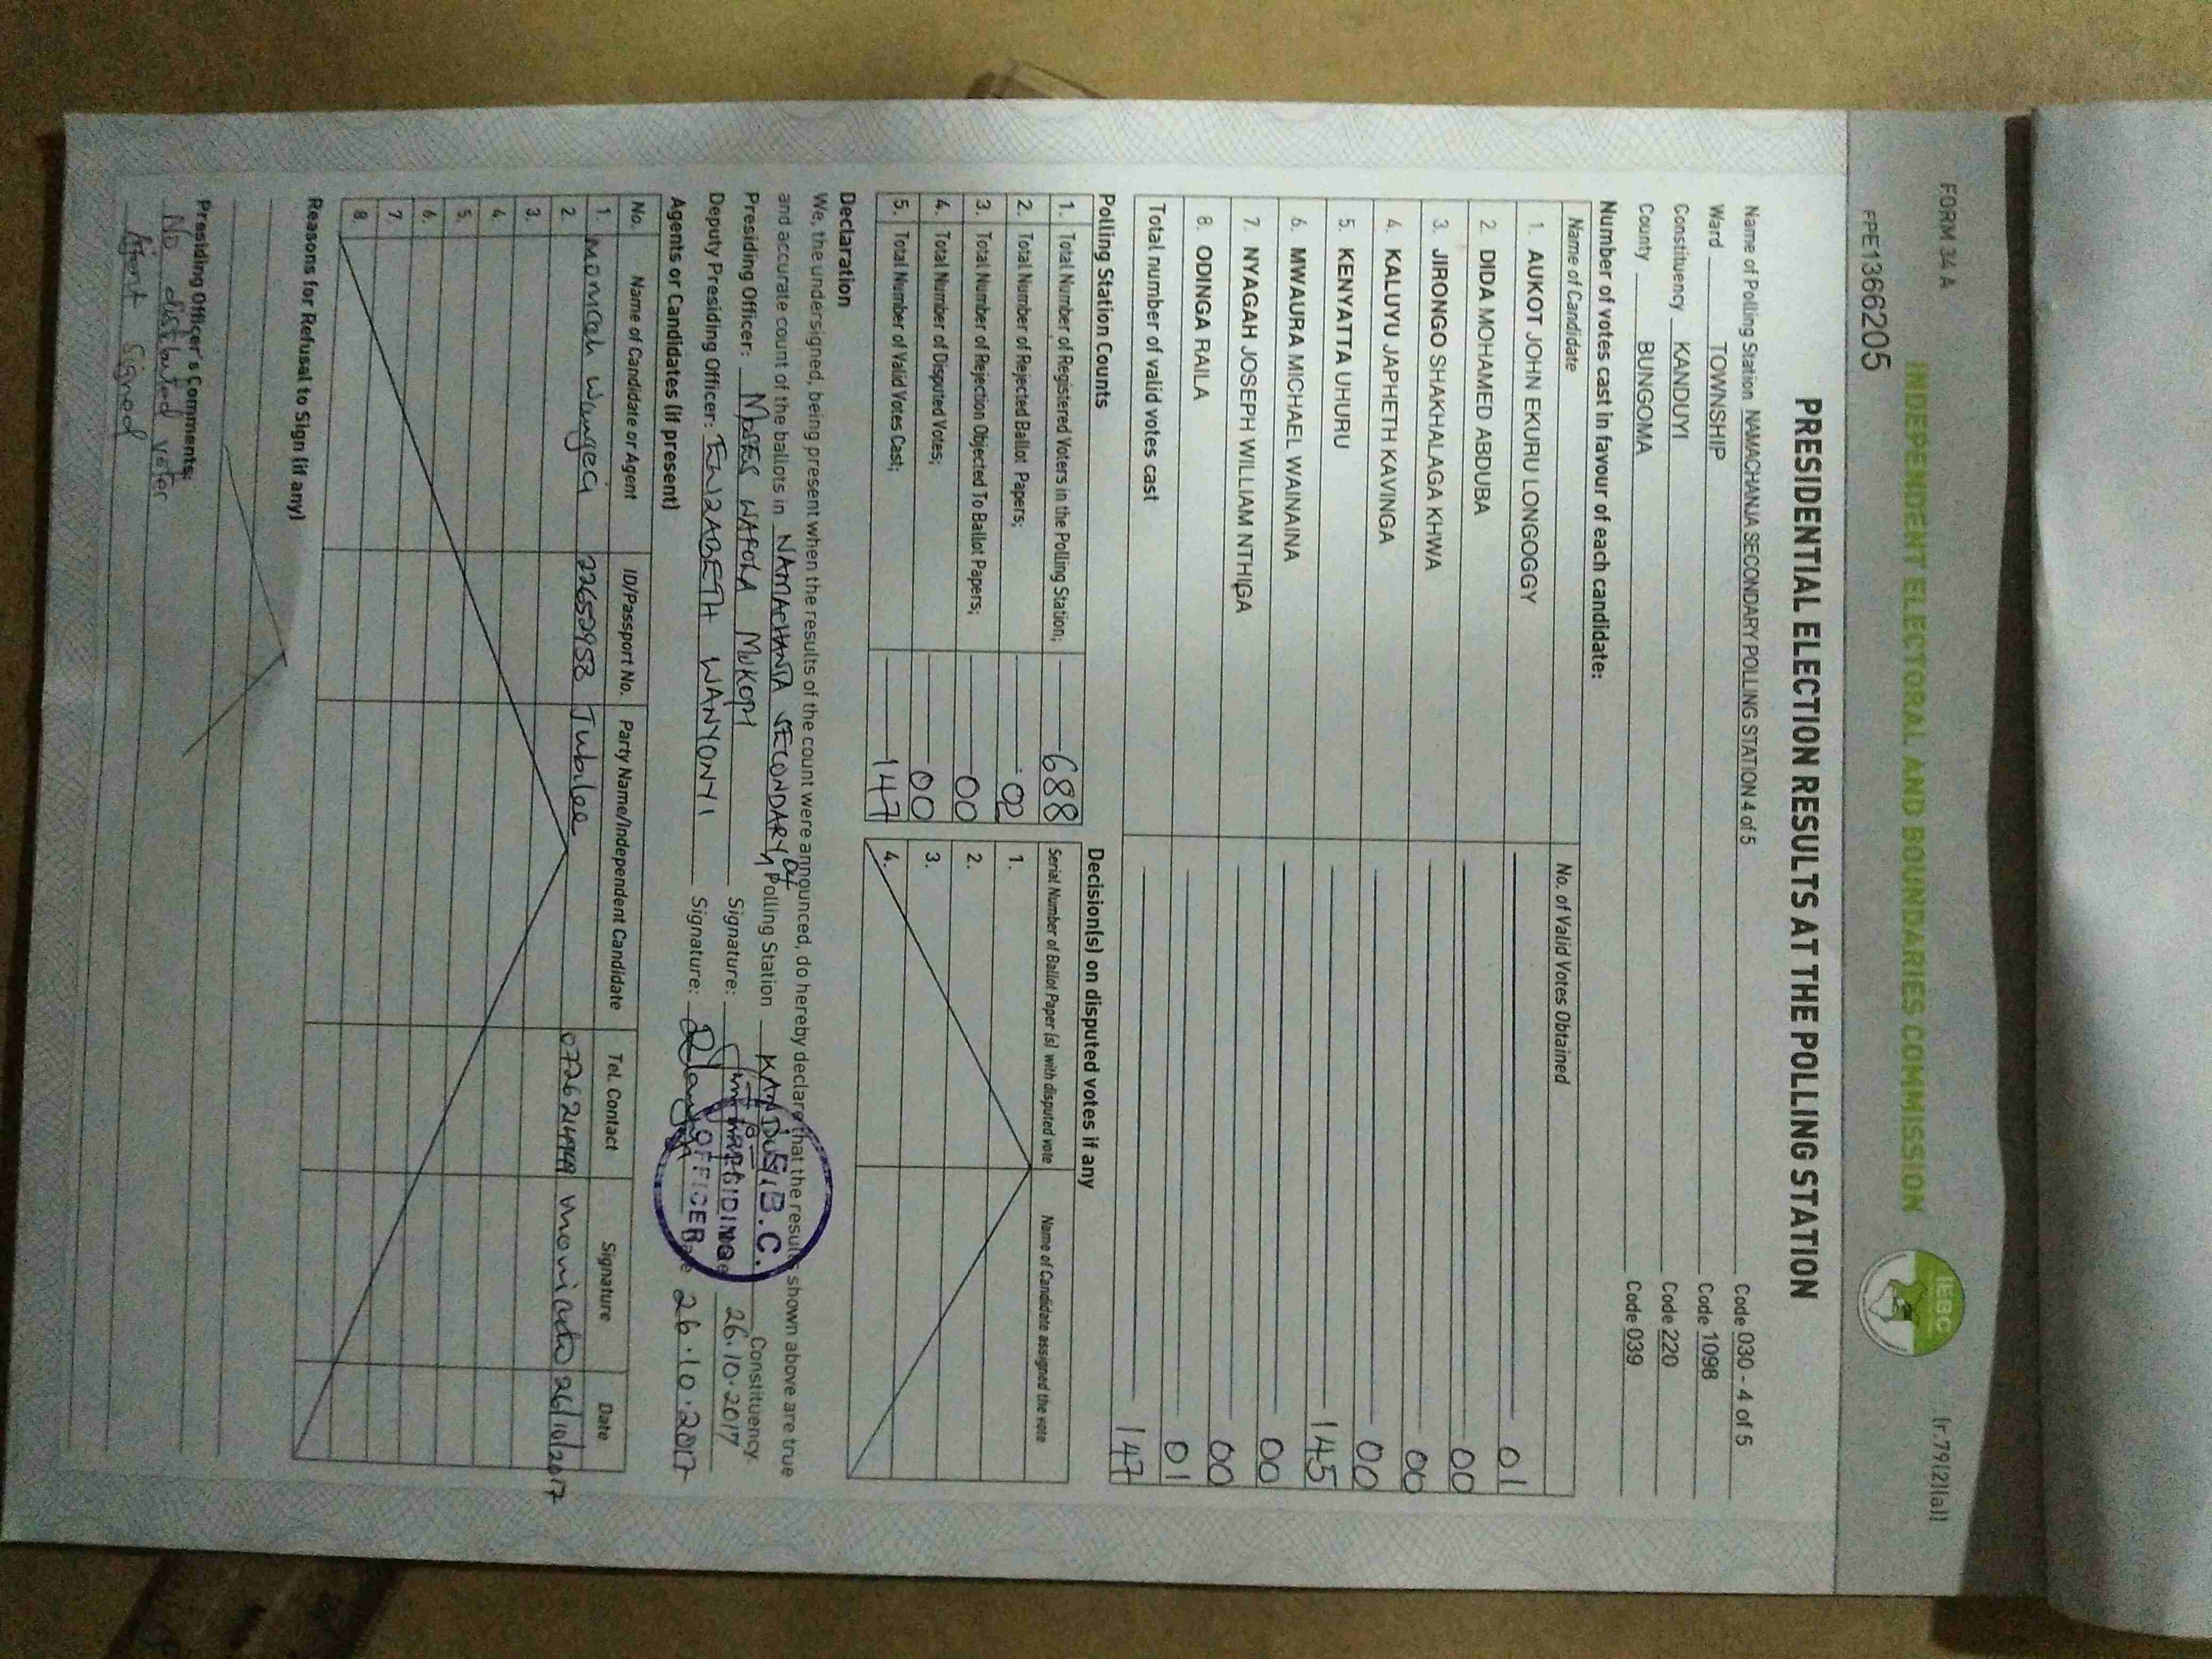 FORM 34A
(r.79(2)(a))
INDEPENDENT ELECTORAL AND BOUNDARIES COMMISSION
IEBC
PPE1366205
PRESIDENTIAL ELECTION RESULTS AT THE POLLING STATION
Name of Polling Station NAMACHANJA SECONDARY POLLING STATION 4 of 5 Code 030 - 4 of 5
Ward TOWNSHIP Code 1098
Constituency KANDUYI Code 220
County BUNGOMA Code 039
Number of votes cast in favour of each candidate:
Name of Candidate No. of Valid Votes Obtained
1. AUKOT JOHN EKURU LONGOGGY 01
2 DIDA MOHAMED ABDUBA 00
3. JIRONGO SHAKHALAGA KHWA 00
4. KALUYU JAPHETH KAVINGA 00
5. KENYATTA UHURU 145
6. MWAURA MICHAEL WAINAINA 00
7. NYAGAH JOSEPH WILLIAM NTHIGA 00
8. ODINGA RAILA 01
Total number of valid votes cast 147
Polling Station Counts
1. Total Number of Registered Voters in the Polling Station; 688
2. Total Number of Rejected Ballot Papers; 02
3. Total Number of Rejection Objected To Ballot Papers; 00
4. Total Number of Disputed Votes; 00
5. Total Number of Valid Votes Cast; 147
Decision(s) on disputed votes if any
Serial Number of Ballot Paper (s) with disputed vote Name of Candidate assigned the vote
1.
2.
3.
4.
Declaration
We, the undersigned, being present when the results of the count were announced, do hereby declare that the results shown above are true
and accurate count of the ballots in NAMACHANJA SECONDARY 04 Polling Station KANDUYI Constituency
Presiding Officer: MOSES WAFULA MUKOPI Signature: 26.10.2017
Deputy Presiding Officer: ENZABETH WANYONYI Signature: Date 26.10.2017
I.E.B.C.
PRESIDING
OFFICER
Agents or Candidates (if present)
No. Name of Candidate or Agent ID/Passport No. Party Name/Independent Candidate Tel. Contact Signature Date
1. monicah wangeci 22652958 Jubilee 26/10/2017
2.
3.
4.
5.
6.
7.
8.
Reasons for Refusal to Sign (if any)
Presiding Officer's Comments:
No distbuted voter
Agent signed